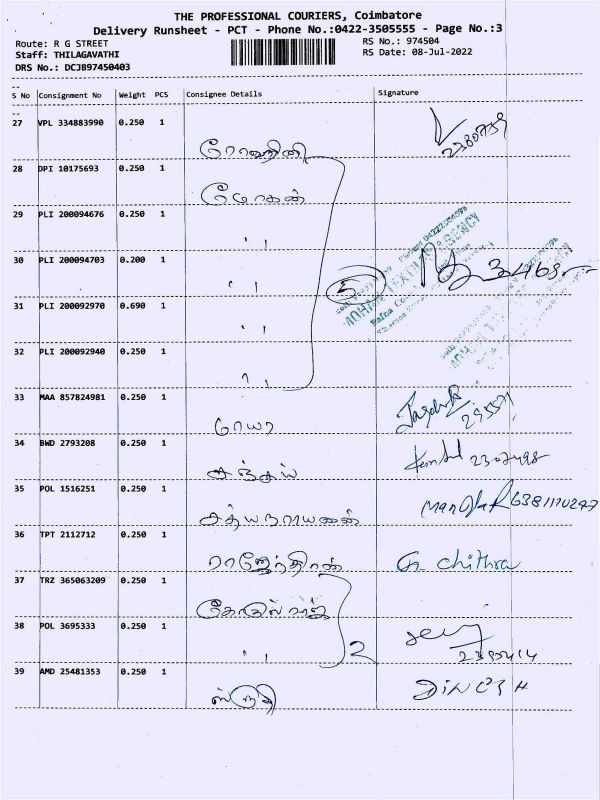 THE PROFESSIONAL COURIERS, Coimbatore
Delivery Runsheet - PCT - Phone No.:0422-3505555 - Page No.:3
Route: R G STREET RS No.: 974504
Staff: THILAGAVATHI RS Date: 08-Jul-2022
DRS No.: DCJB97450403
S No Consignment No Weight PCS Consignee Details Signature
27 VPL 334883990 0.250 1
28 DPI 10175693 0.250 1
மோகன்
29 PLI 200094676 0.250 1
''
30 PLI 200094703 0.200 1
''
5
31 PLI 200092970 0.690 1
''
32 PLI 200092940 0.250 1
''
33 MAA 857824981 0.250 1
34 BWD 2793208 0.250 1
சஞ்சய்
35 POL 1516251 0.250 1
சத்யநாராயணன்
36 TPT 2112712 0.250 1
ராஜேந்திரன் G. Chithra
37 TRZ 365063209 0.250 1
கோகுல்ராஜ்
38 POL 3695333 0.250 1
'' 2
39 AMD 25481353 0.250 1
ஸ்ருதி